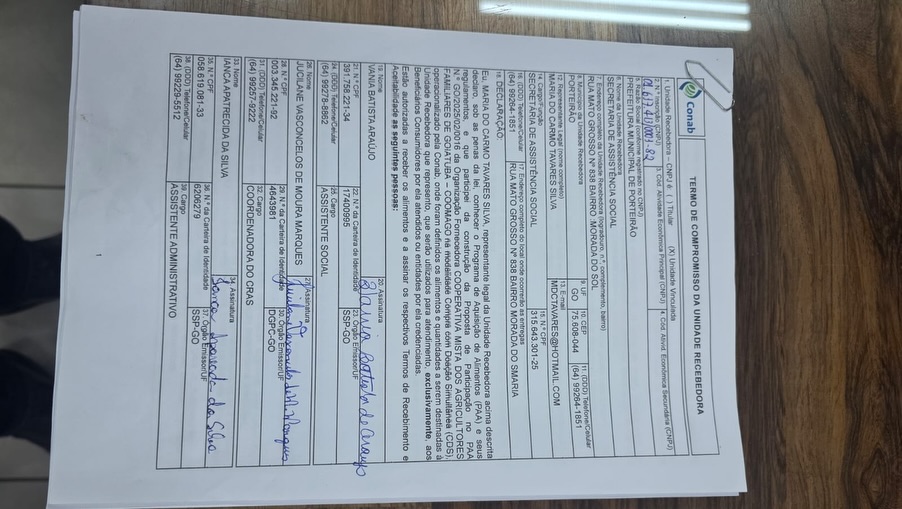 Conab
TERMO DE COMPROMISSO DA UNIDADE RECEBEDORA
1. Unidade Recebedora – CNPJ é: ( ) Titular (X) Unidade Vinculada
2. N.º Inscrição (CNPJ) 3. Cód. Atividade Econômica Principal (CNPJ) 4. Cód. Ativid. Econômica Secundária (CNPJ)
5. Razão Social (conforme registrado no CNPJ)
PREFEITURA MUNICIPAL DE PORTEIRÃO
6. Nome da Unidade Recebedora
SECRETARIA DE ASSISTÊNCIA SOCIAL
7. Endereço completo da Unidade Recebedora (logradouro, n.º, complemento, bairro)
RUA MATO GROSSO Nº 838 BAIRRO: MORADA DO SOL
8. Município da Unidade Recebedora 9. UF 10. CEP 11. (DDD) Telefone/Celular
PORTEIRÃO GO 75.608-044 (64) 99264-1851
12. Representante Legal (nome completo) 13. E-mail
MARIA DO CARMO TAVARES SILVA MDCTAVARES@HOTMAIL.COM
14. Cargo/Função 15. N.º CPF
SECRETARIA DE ASSISTÊNCIA SOCIAL 315.643.301-25
16. (DDD) Telefone/Celular 17. Endereço completo do local onde ocorrerão as entregas
(64) 99264-1851 RUA MATO GROSSO Nº 838 BAIRRO MORADA DO SMARIA
18. DECLARAÇÃO
Eu, MARIA DO CARMO TAVARES SILVA, representante legal da Unidade Recebedora acima descrita
declaro, sob as penas da lei, conhecer o Programa de Aquisição de Alimentos (PAA) e seus
regulamentos, e que participei da construção da Proposta de Participação no PAA
N.º GO/2025/02/0016 da Organização Fornecedora COOPERATIVA MISTA DOS AGRICULTORES
FAMILIARES DE GOIATUBA – COOMAGO na modalidade Compra com Doação Simultânea (CDS),
operacionalizado pela Conab, onde foram definidos os alimentos e quantidades a serem destinadas à
Unidade Recebedora que represento, que serão utilizados para atendimento, exclusivamente, aos
Beneficiários Consumidores por ela atendidos ou entidades por ela credenciadas.
Estão autorizadas a receber os alimentos e a assinar os respectivos Termos de Recebimento e
Aceitabilidade as seguintes pessoas:
19. Nome 20. Assinatura
VANIA BATISTA ARAÚJO Vania Batista de Araujo
21. N.º CPF 22. N.º da Carteira de Identidade 23. Órgão Emissor/UF
391.758.221-34 17400995 SSP-GO
24. (DDD) Telefone/Celular 25. Cargo
(64) 99278-8892 ASSISTENTE SOCIAL
26. Nome 27. Assinatura
JUCILANE VASCONCELOS DE MOURA MARQUES
28. N.º CPF 29. N.º da Carteira de Identidade 30. Órgão Emissor/UF
003.345.221-92 4643981 DGPC-GO
31. (DDD) Telefone/Celular 32. Cargo
(64) 99257-9222 COORDENADORA DO CRAS
33. Nome 34. Assinatura
IANCA APARECIDA DA SILVA Ianca Aparecida da Silva
35. N.º CPF 36. N.º da Carteira de Identidade 37. Órgão Emissor/UF
058.619.081-33 6206279 SSP-GO
38. (DDD) Telefone/Celular 39. Cargo
(64) 99229-5512 ASSISTENTE ADMINISTRATIVO
1